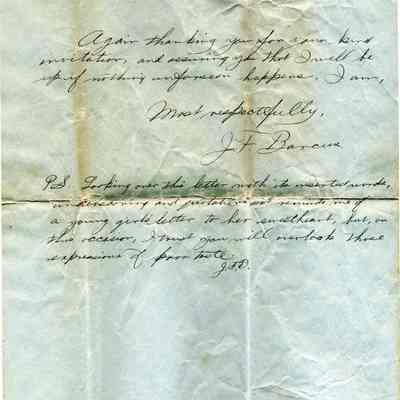 Again thanking you for your kind
invitation, and assuring you that I will be
up if nothing unforseen happens. I am,
Most respectfully,
J F Barcus
P.S. Looking over this letter with its inserted words,
underscoring and postscript reminds me of
a young girl's letter to her sweetheart, but, on
this occasion, I trust you will overlook those
expressions of poor taste.